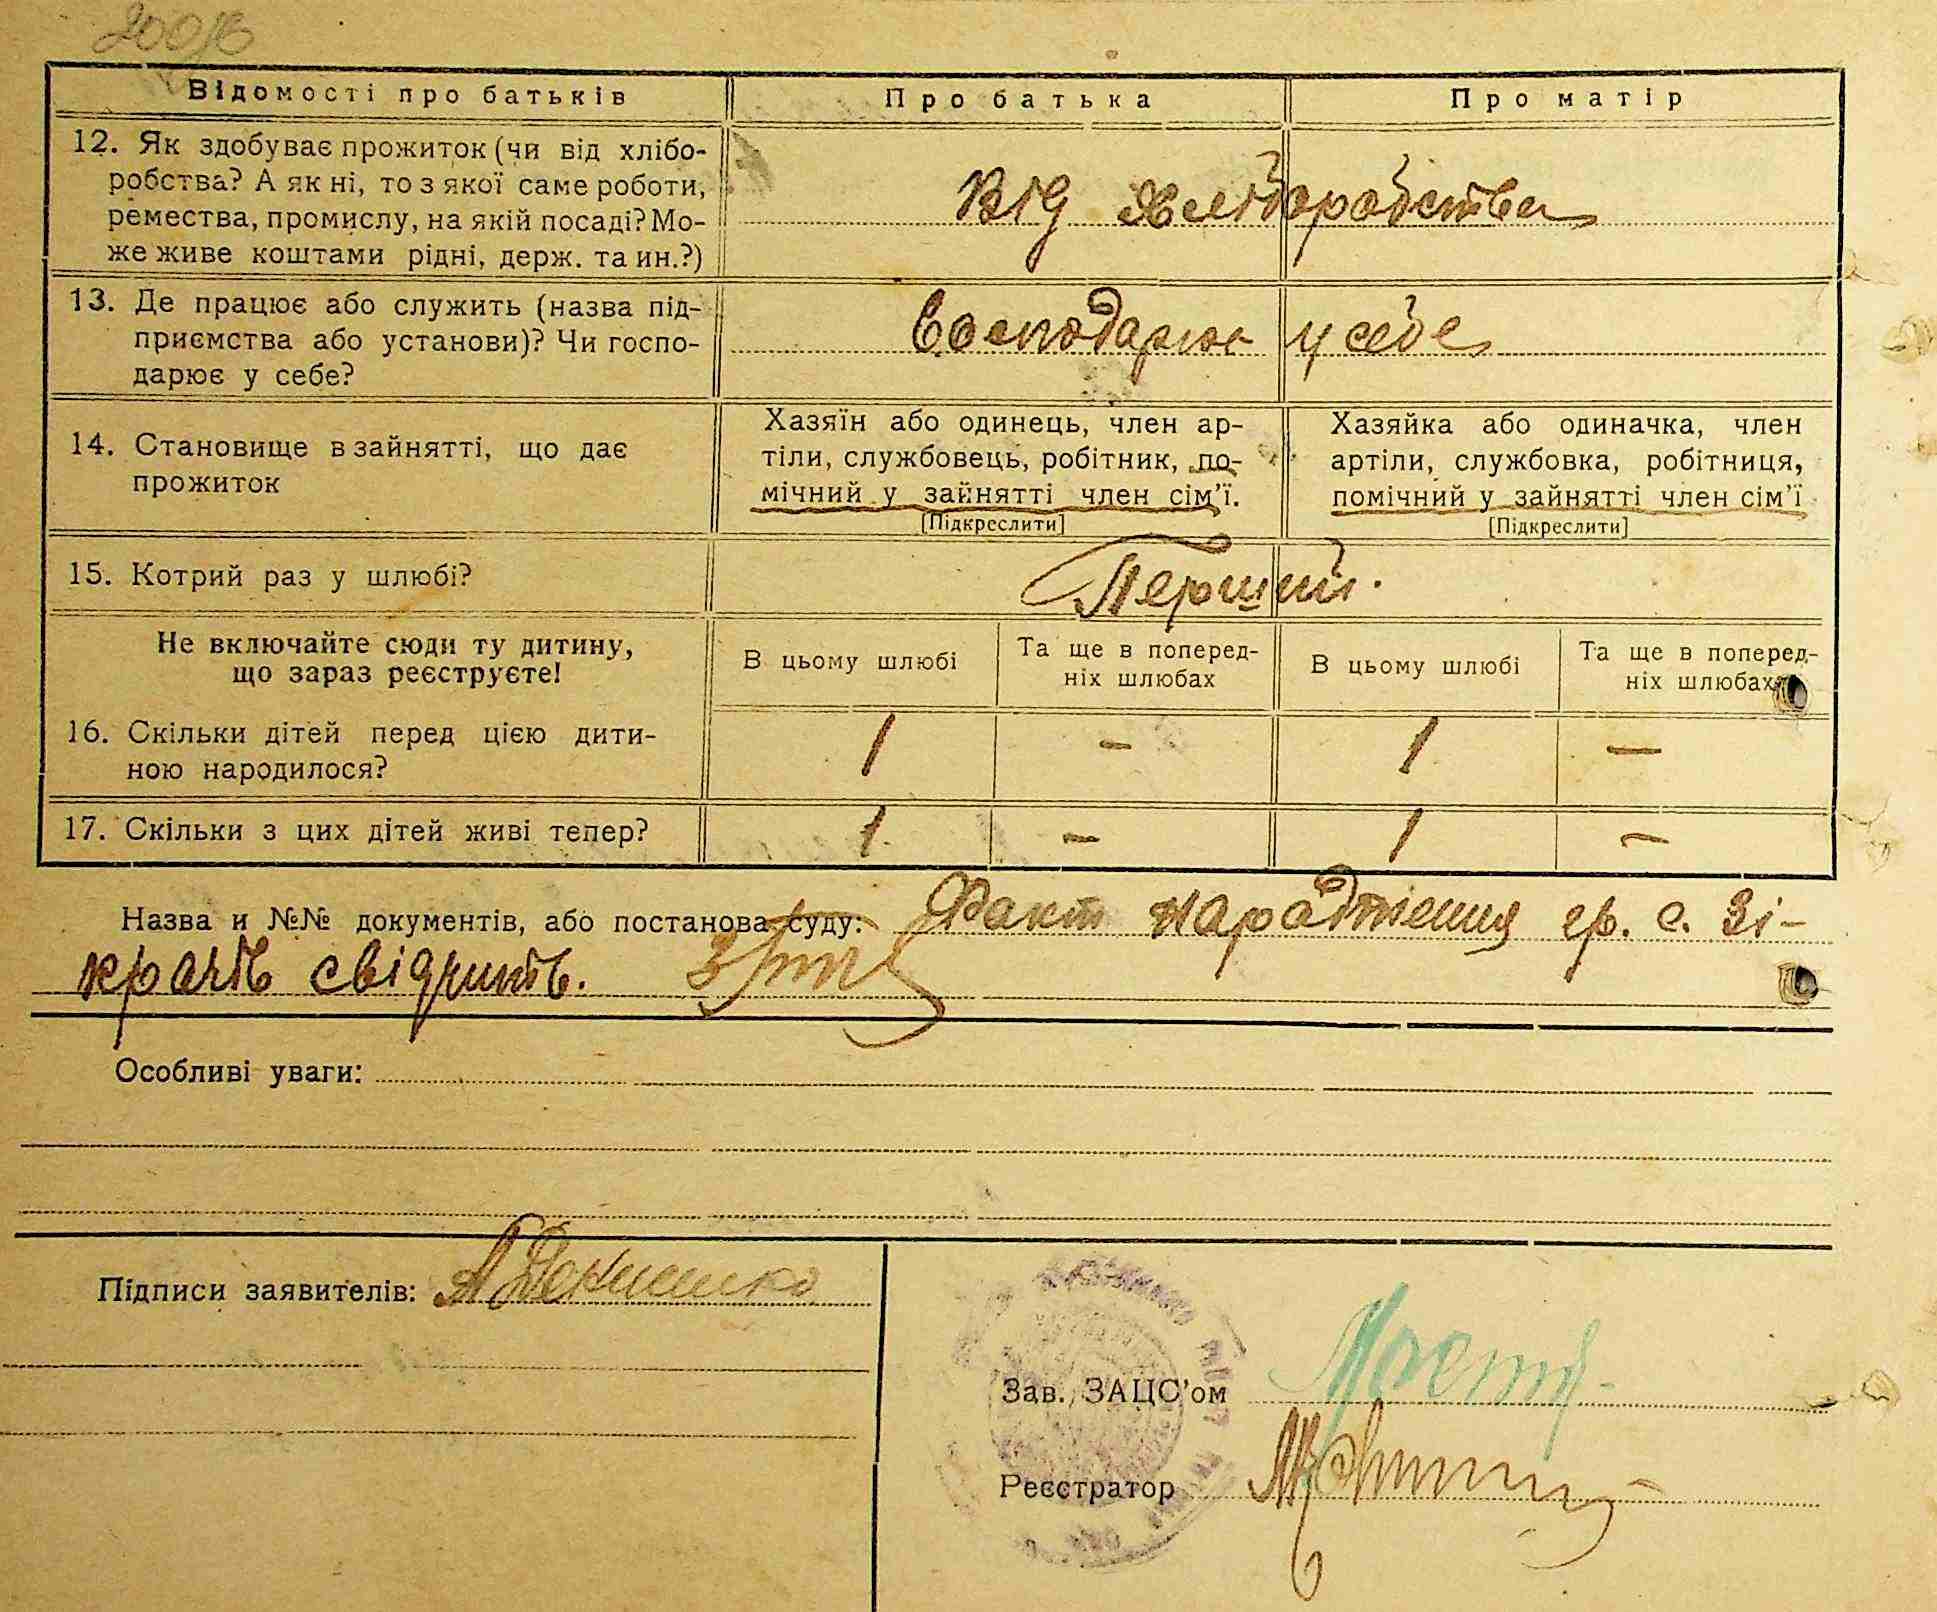 Відомості про батьків
Про батька
Про матір
12. Як здобуває прожиток (чи від хлібо-
робства? А як ні, то з якої саме роботи,
ремества, промислу, на якій посаді? Мо-
же живе коштами рідні, держ. та ин.?)
Від хліборобства
13. Де працює або служить (назва під-
приємства або установи)? Чи госпо-
дарює у себе?
Господарює у себе
14. Становище в зайнятті, що дає
прожиток
Хазяїн або одинець, член ар-
тіли, службовець, робітник, по-
мічний у зайнятті член сім'ї.
[Підкреслити]
Хазяйка або одиначка, член
артіли, службовка, робітниця,
помічний у зайнятті член сім'ї
[Підкреслити]
15. Котрий раз у шлюбі?
Перший.
Не включайте сюди ту дитину,
що зараз реєструєте!
В цьому шлюбі
Та ще в поперед-
ніх шлюбах
В цьому шлюбі
Та ще в поперед-
ніх шлюбах
16. Скільки дітей перед цією дити-
ною народилося?
1 – 1 –
17. Скільки з цих дітей живі тепер?
1 – 1 –
Назва и №№ документів, або постанова суду: Факт народження гр. с. Зі-
крачів свідчить.
Особливі уваги:
Підписи заявителів:
Зав. ЗАЦС'ом
Реєстратор